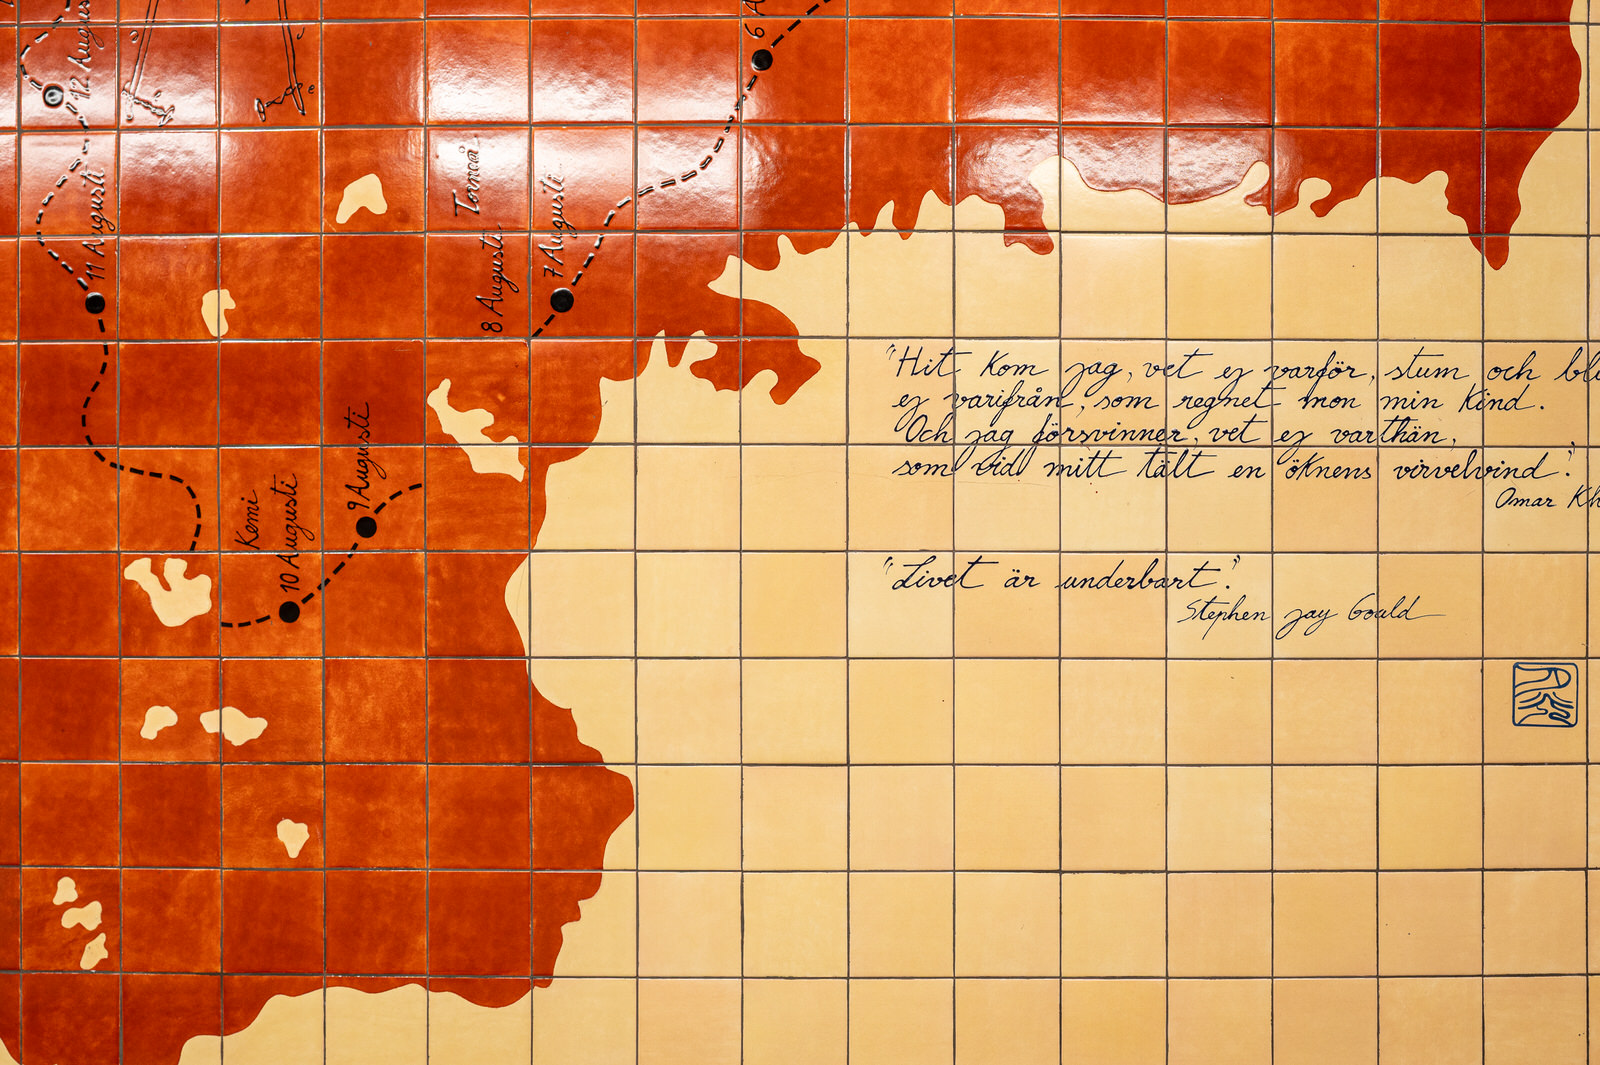 12 Augusti
11 Augusti
Tornеå
8 Augusti
7 Augusti
9 Augusti
Kemi
10 Augusti
"Hit kom jag, vet ej varför, stum och
ej varifrån, som regnet mon min kind.
Och jag försvinner, vet ej varthän,
som vid mitt tält en öknens virvelvind".
Omar
"Livet är underbart".
Stephen Jay Gould